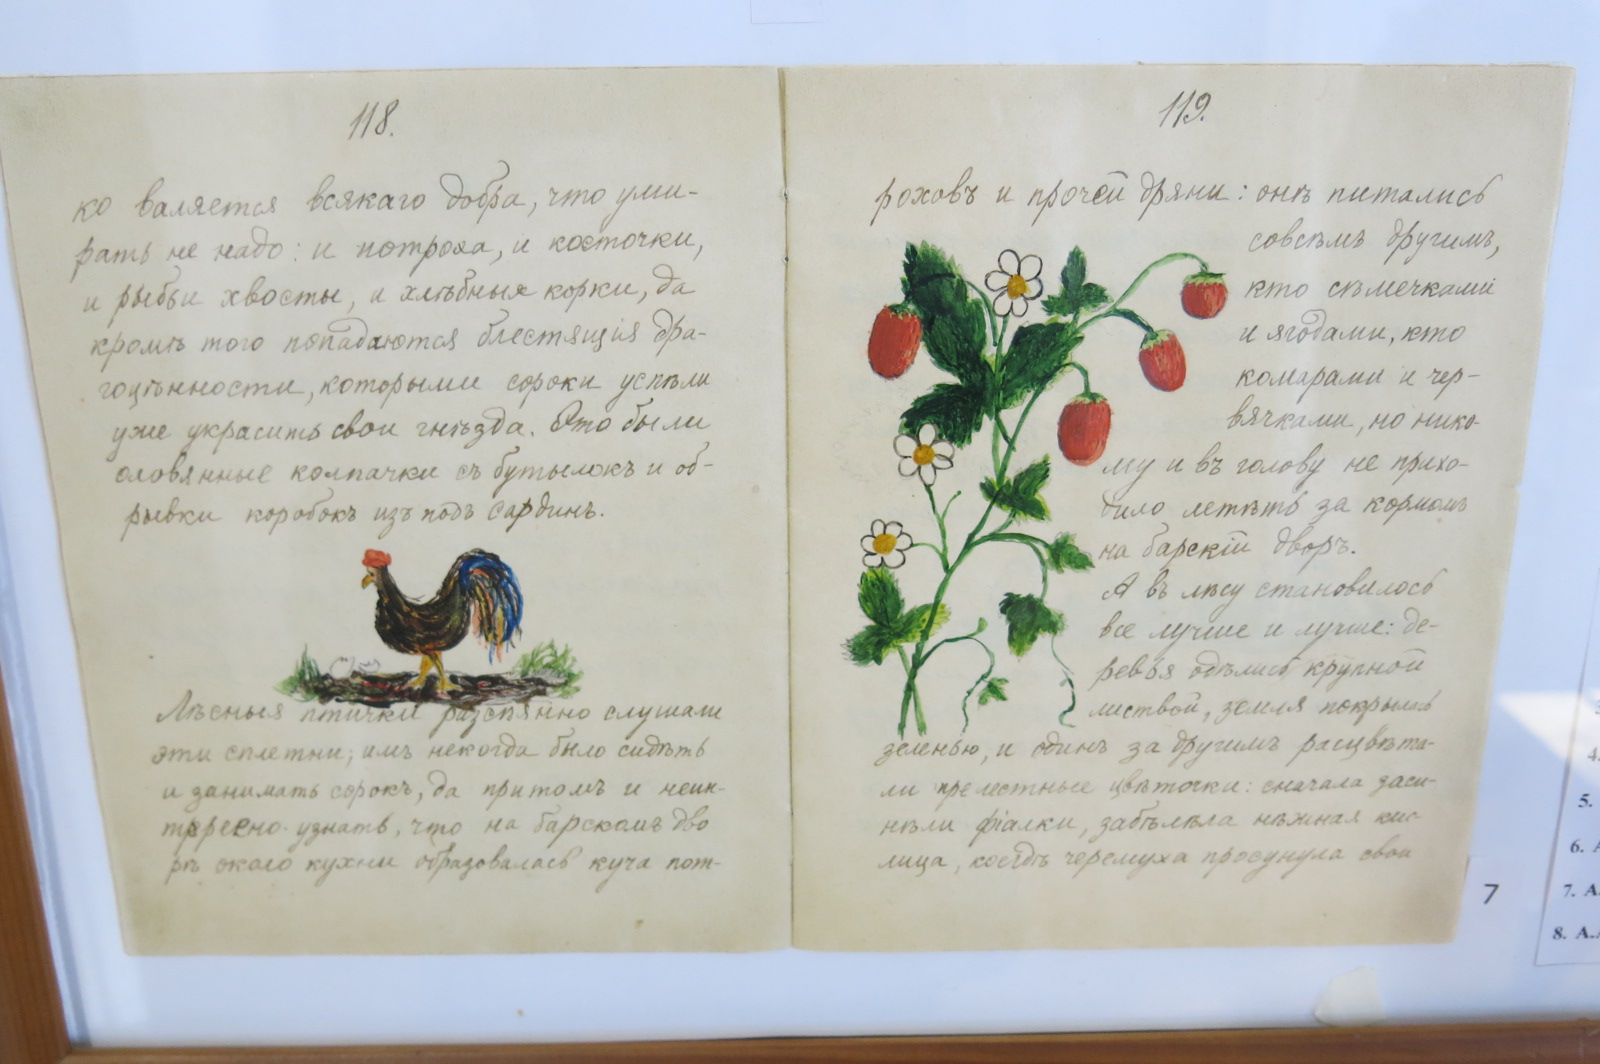 118.
ко валяется всякаго добра, что уми-
рать не надо: и потроха, и косточки,
и рыбьи хвосты, и хлѣбныя корки, да
кромѣ того попадаются блестящія дра-
гоцѣнности, которыми сороки успѣли
уже украсить свои гнѣзда. Это были
оловянные колпачки съ бутылокъ и об-
рывки коробокъ изъ подъ сардинъ.
Лѣсныя птички разсѣянно слушали
эти сплетни; имъ некогда было сидѣть
и занимать сорокъ, да притомъ и неин-
тересно узнать, что на барскомъ дво
рѣ около кухни образовалась куча пот-
119.
роховъ и прочей дряни: онѣ питались
совсѣмъ другимъ,
кто сѣмечками
и ягодами, кто
комарами и чер-
вячками, но нико-
му и въ голову не прихо-
дило летѣть за кормомъ
на барскій дворъ.
А въ лѣсу становилось
все лучше и лучше: де-
ревья одѣлись крупной
листвой, земля покрылась
зеленью, и одинъ за другимъ расцвѣта-
ли прелестные цвѣточки: сначала заси-
нѣли фіалки, забѣлѣла нѣжная кис
лица, кое гдѣ черемуха просунула свои
7
4.
5.
6. А
7. А.
8. А.